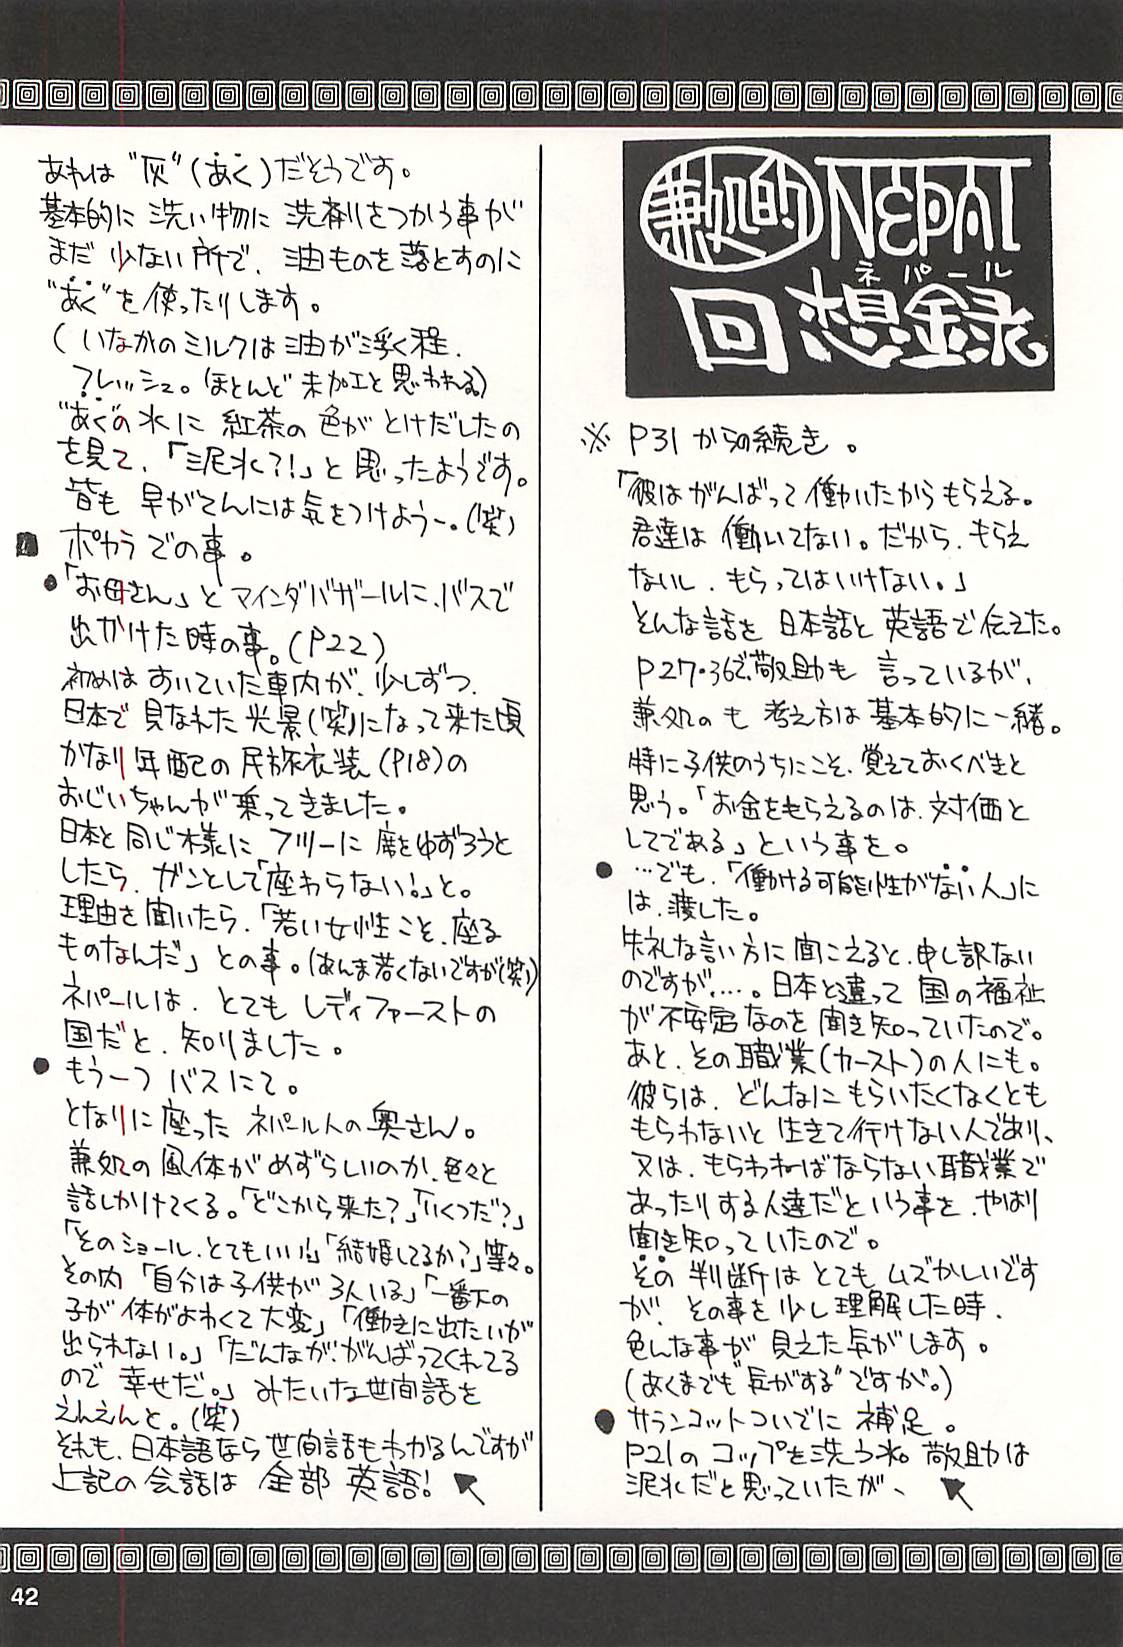 兼処的 NEPAL
ネパール
回想録
※ P31からの続き。
「彼はがんばって働いたからもらえる。
君達は働いてない。だから、もらえ
ないし、もらってはいけない。」
そんな話を日本語と英語で伝えた。
P27・36で敬助も言っているが、
兼処のも考え方は基本的に一緒。
特に子供のうちにこそ、覚えておくべきと
思う。「お金をもらえるのは、対価と
してである」という事を。
●…でも、「働ける可能性がない人」に
は、渡した。
失礼な言い方に聞こえると、申し訳ない
のですが…。日本と違って国の福祉
が不安定なのを聞き知っていたので。
あと、その職業(カースト)の人にも。
彼らは、どんなにもらいたくなくとも
もらわないと生きて行けない人であり、
又は、もらわねばならない職業で
あったりする人達だという事を、やはり
聞き知っていたので。
その判断はとてもムズかしいです
が、その事を少し理解した時、
色んな事が見えた気がします。
(あくまでも“気がする”ですが。)
●サランコットついでに補足。
P21のコップを洗う水。敬助は
泥水だと思っていたが、
あれは“灰”(あく)だそうです。
基本的に洗い物に洗剤をつかう事が
まだ少ない所で、油ものを落とすのに
“あく”を使ったりします。
(いなかのミルクは油が浮く程、
フレッシュ。(ほとんど未加工と思われる)
“あく”の水に紅茶の色がとけだしたの
を見て、「泥水?!」と思ったようです。
皆も早がてんには気をつけようー。(笑)
■ポカラでの事。
●「お母さん」とマインダバザールに、バスで
出かけた時の事。(P22)
初めはすいていた車内が、少しずつ、
日本で見なれた光景(笑)になって来た頃
かなり年配の民族衣装(P18)の
おじいちゃんが乗ってきました。
日本と同じ様にフツーに席をゆずろうと
したら、ガンとして「座わらない!」と。
理由を聞いたら、「若い女性こそ、座る
ものなんだ」との事。(あんま若くないですが(笑))
ネパールは、とてもレディファーストの
国だと、知りました。
●もう一つバスにて。
となりに座ったネパール人の奥さん。
兼処の風体がめずらしいのか、色々と
話しかけてくる。「どこから来た?」「いくつだ?」
「そのショール、とてもいい!」「結婚してるか?」等々。
その内「自分は子供が3人いる」「一番下の
子が体がよわくて大変」「働きに出たいが
出られない。」「だんなが、がんばってくれてる
ので幸せだ。」みたいな世間話を
えんえんと。(笑)
それも、日本語なら世間話もわかるんですが
上記の会話は全部英語!
42